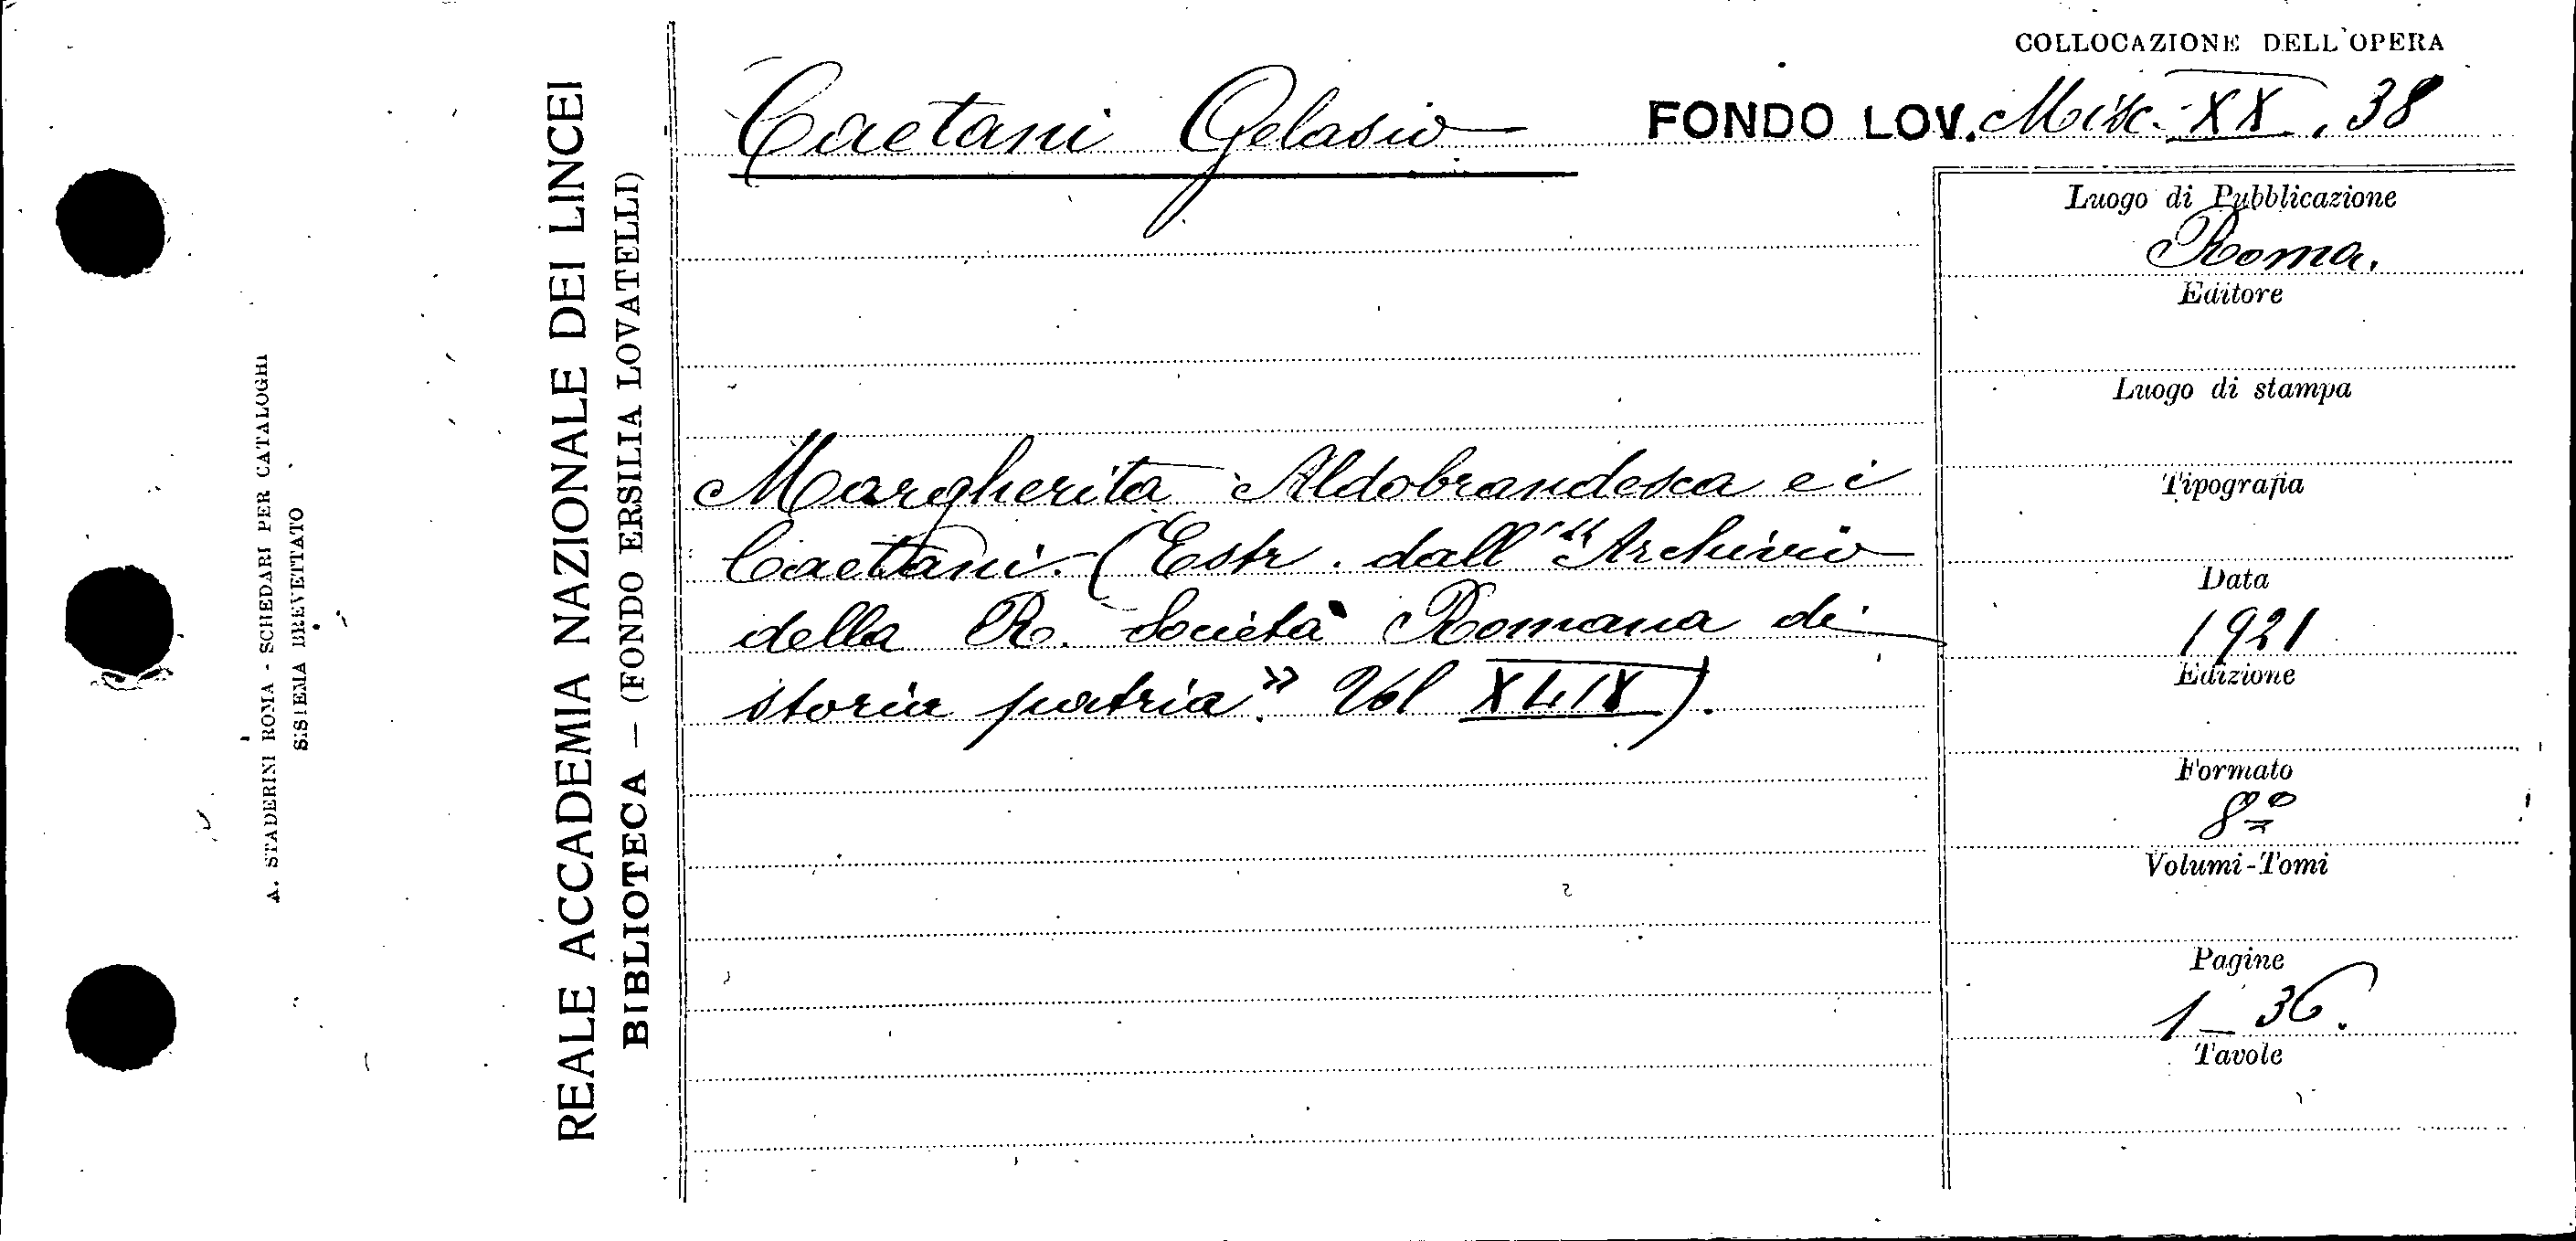 COLLOCAZIONE DELL'OPERA
Caetani Gelasio
FONDO LOV. Misc. XX. 38
Margherita Aldobrandesca e i
Caetani. (Estr. dall' "Archivio
della R. Società Romana di
storia patria" Vol XLIV).
Luogo di Pubblicazione
Roma.
Editore
Luogo di stampa
Tipografia
Data
1921
Edizione
Formato
8º
Volumi-Tomi
Pagine
1-36.
Tavole
REALE ACCADEMIA NAZIONALE DEI LINCEI
BIBLIOTECA - (FONDO ERSILIA LOVATELLI)
A. STADERINI ROMA - SCHEDARI PER CATALOGHI
SISTEMA BREVETTATO